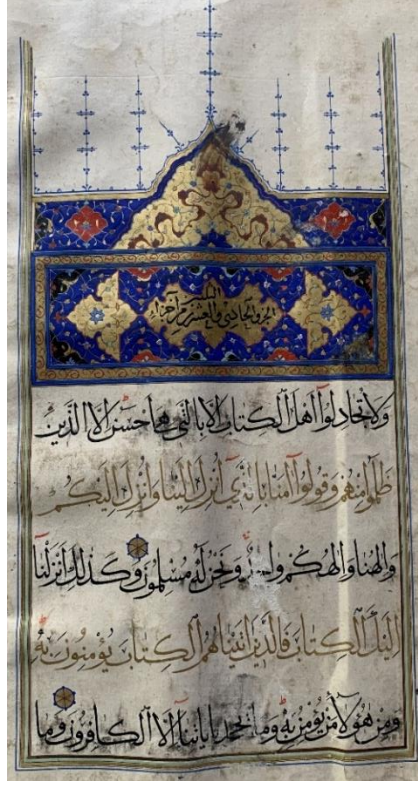 الجزو الحادي والعشرين من اجزا
ولا تجادلوا اهل الكتاب الا بالتي هي احسن الا الذين
ظلموا منهم وقولوا آمنا بالذي انزل الينا وانزل اليكم
والهنا والهكم ونحن له مسلمون وكذلك انزلنا
اليك الكتاب فالذين اتيناهم الكتاب يؤمنون به
ومن هؤلاء من يؤمن به وما يجحد باياتنا الا الكافرون وما